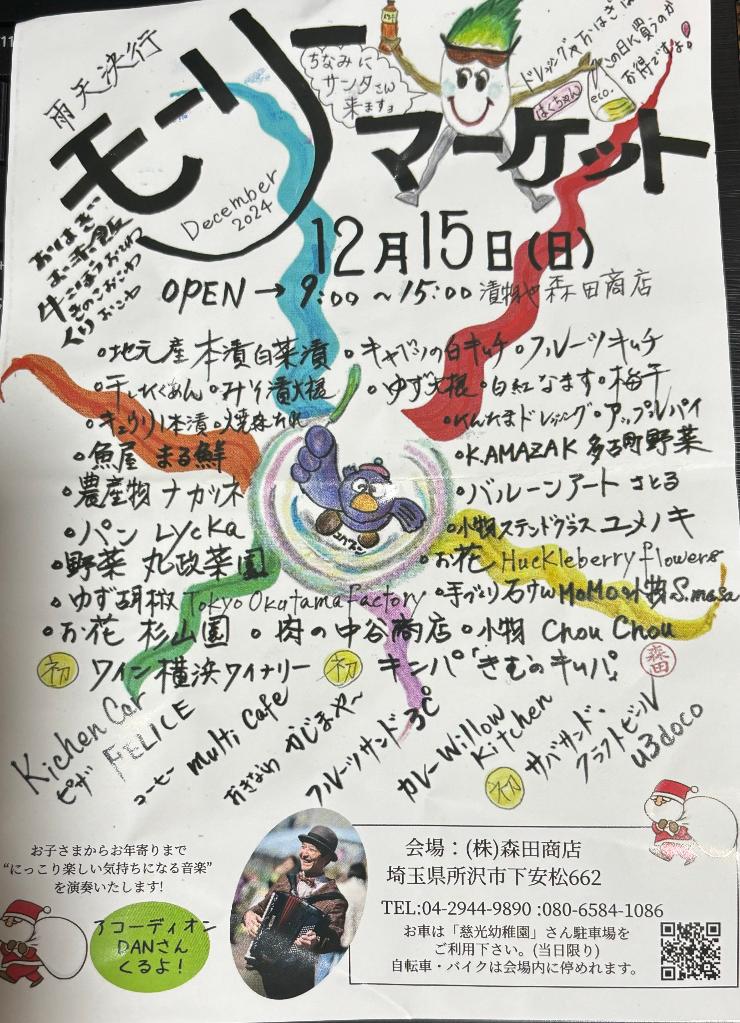 雨天決行
モーリーマーケット
ちなみに
サンタさん
来ますョ
ドレッシングやおはぎは
この日に買うのが
お得ですよ!
はくちゃん
eco.
December
2024
おはぎ
お赤飯
牛ごぼうおこわ
きのこおこわ
くりおこわ
12月15日(日)
OPEN→9:00~15:00 漬物や 森田商店
・地元産本漬白菜漬・キャベツの白キムチ・フルーツキムチ
・干したくあん・みそ漬大根・ゆず大根・白紅なます・梅干
・キュウリ1本漬・焼豚たれ
・けんたまドレッシング・アップルパイ
・魚屋 まる鮮
・K.AMAZAK 多古町野菜
・農産物 ナカツネ
・バルーンアート さとる
・パン Lycka
・小物ステンドグラス ユメノキ
・野菜 丸政菜園
・お花 Huckleberry flowers
・ゆず胡椒 Tokyo Okutama factory
・手づくり石けん MoMo 小物 S.masa
・お花 杉山園・肉の中谷商店・小物 Chou Chou
初 ワイン 横浜ワイナリー
初 キンパ「きむのキムパ」
森田
Kichen Car
ピザ FELICE
コーヒー multi cafe
おきなわ かじまやー
フルーツサンド 3℃
カレー Willow
Kitchen
初 サバサンド・
クラフトビール
u3doco
お子さまからお年寄りまで
“にっこり楽しい気持ちになる音楽”
を演奏いたします!
アコーディオン
DANさん
くるよ!
会場:(株)森田商店
埼玉県所沢市下安松662
TEL:04-2944-9890 :080-6584-1086
お車は「慈光幼稚園」さん駐車場を
ご利用下さい。(当日限り)
自転車・バイクは会場内に停めれます。